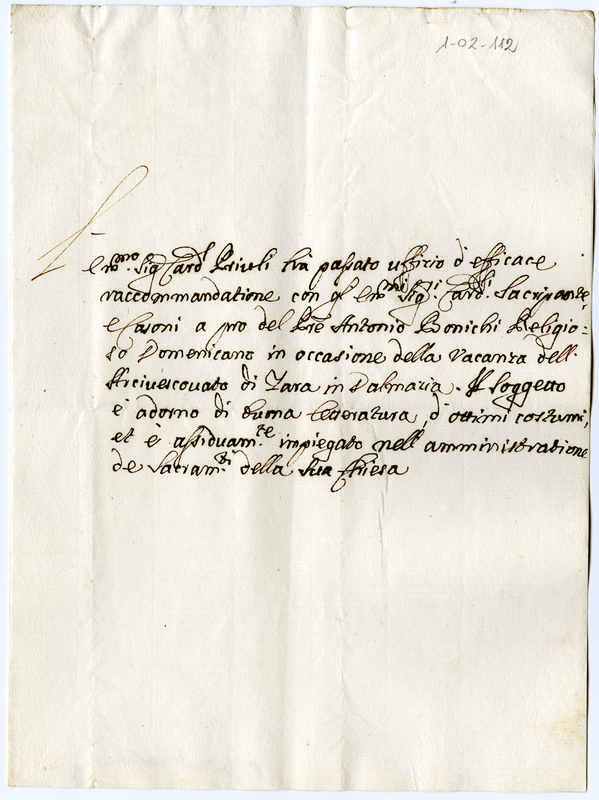 1-02-112
L'
em.mo Sig.r Card.l Priuli hà passato uffizio d'efficace
raccommandatione con gl' em.mi Sig.ri Card.li Sacripante,
e Casoni a pro del Pre Antonio Bonichi Religio=
so Domenicano in occasione della Vacanza dell'
Arcivescovato di Zara in Dalmazia. Il Soggetto
è adorno di buona letteratura, d'ottimi costumi,
et è assiduam.te impiegato nell'amministratione
de Sacram.ti della Sua Chiesa